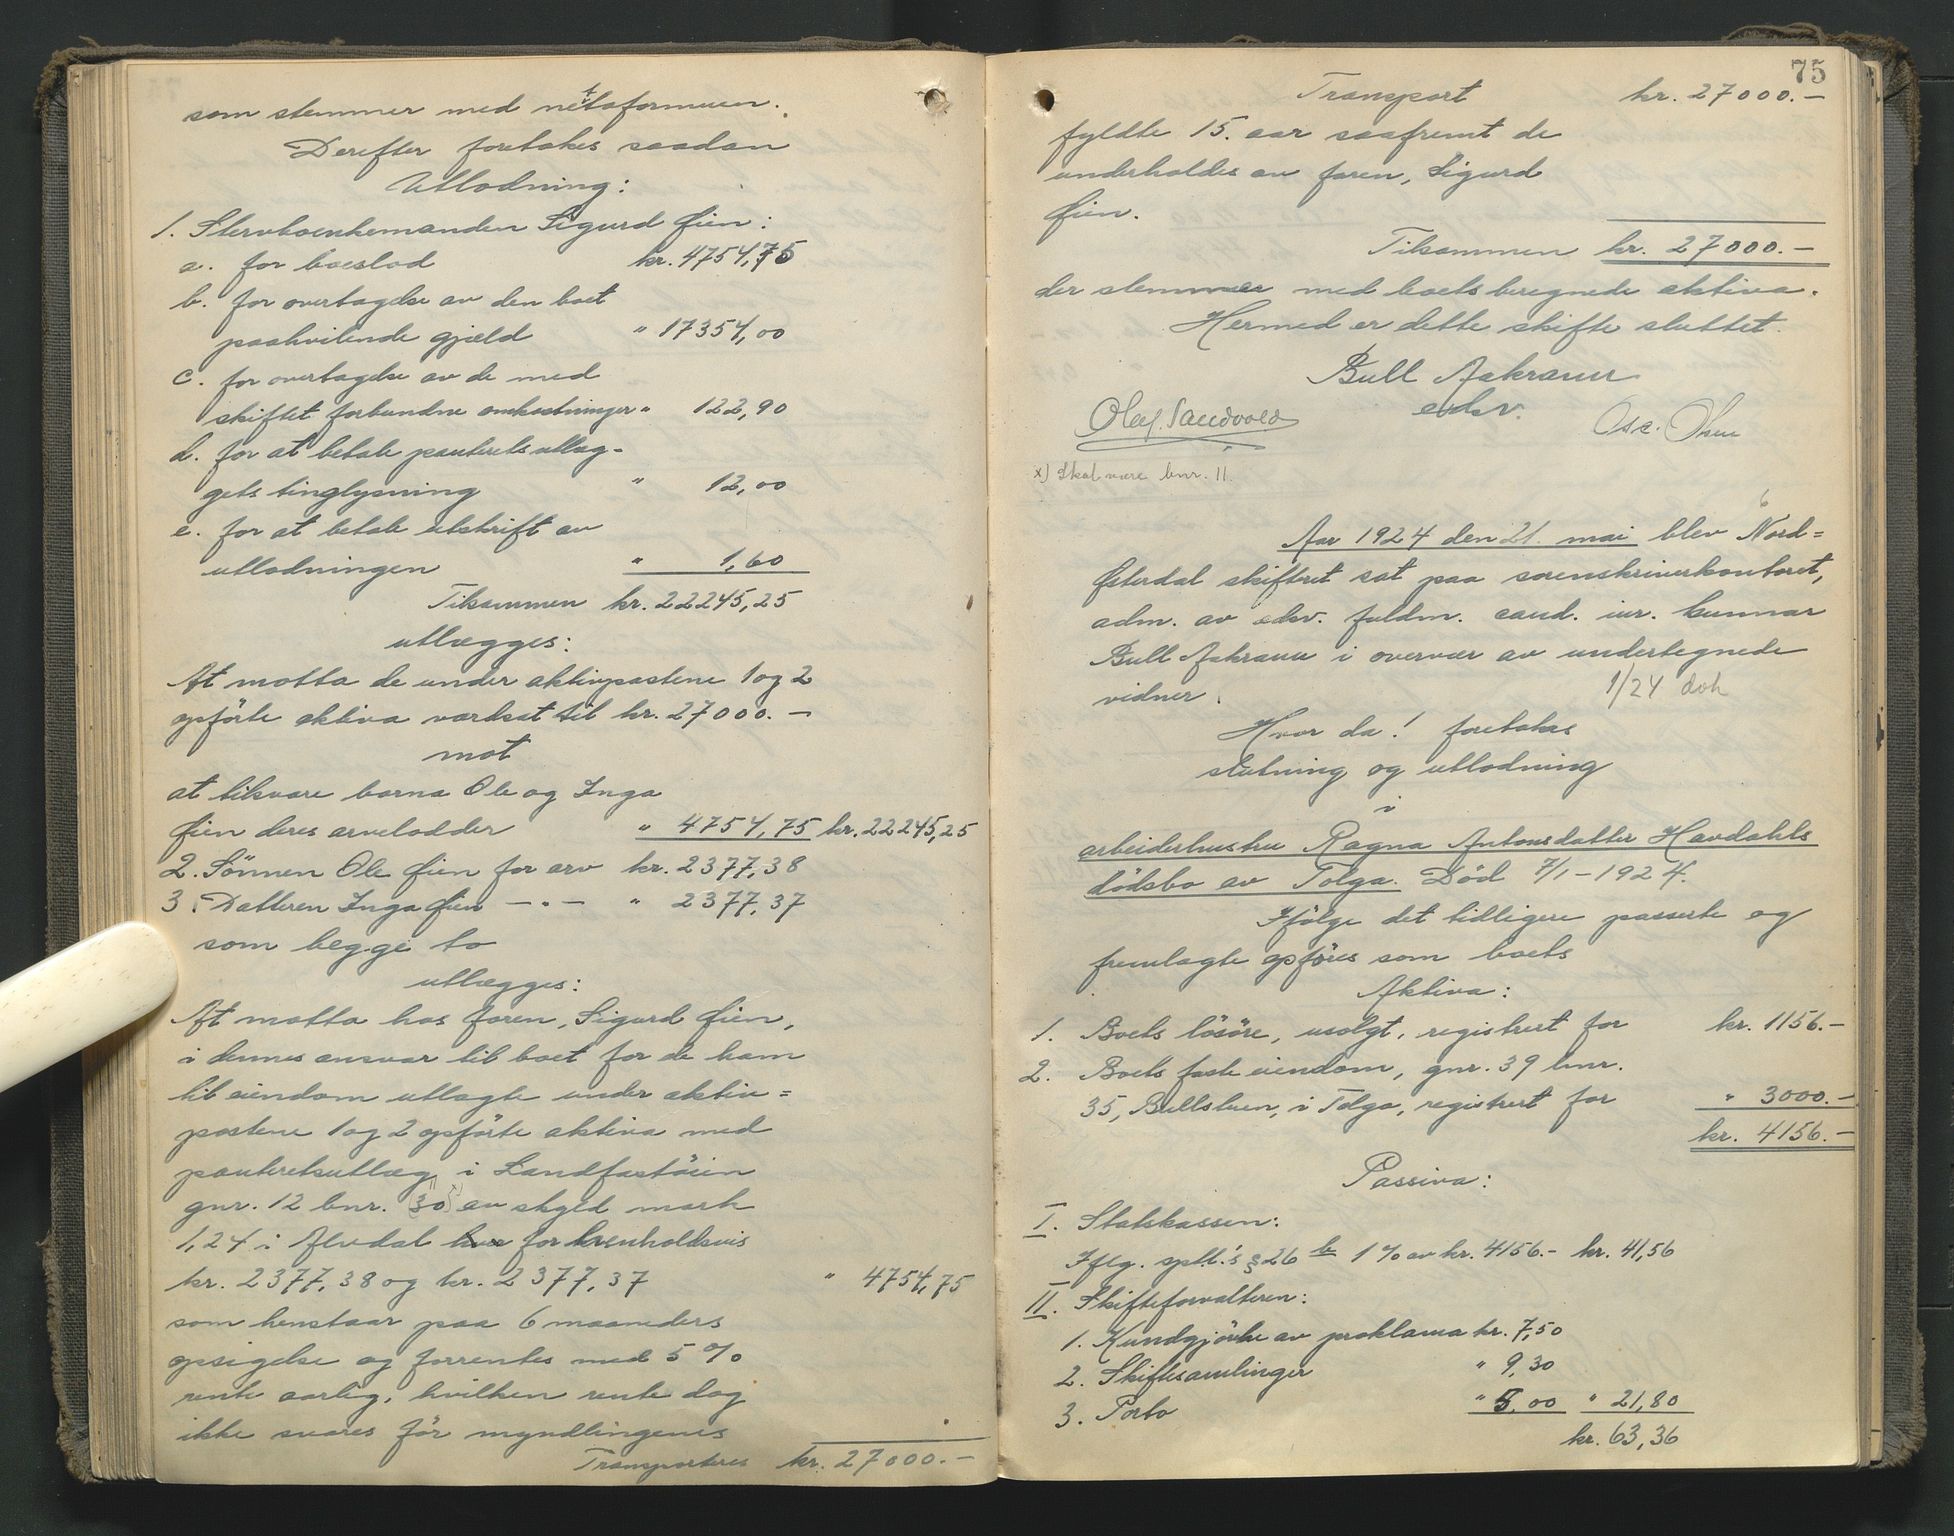 som stemmer med nettoformuen.
Derefter foretokes saadan
Utlodning:
1. Stervboenkemanden Sigurd Øien:
a. for boeslod kr. 4754,75
b. for overtagelse av den boet
paahvilende gjæld " 17354,00
c. for overtagelse av de med
skiftet forbundne omkostninger " 122,90
d. for at betale panteretsutlæg-
gets tinglysning " 12,00
e. for at betale utskrift av
utlodningen " 1,60
Tilsammen kr. 22245,25
utlægges:
At motta de under aktivpostene 1 og 2
opförte aktiva værdsat til kr. 27000.-
mot
at tilsvare barna Ole og Inga
Øien deres arvelodder " 4754,75 kr. 22245,25
2. Sönnen Ole Øien for arv kr. 2377,38
3. Datteren Inga Øien -"- " 2377,37
som begge to
utlægges:
At motta hos faren, Sigurd Øien,
i dennes ansvar til boet for de ham
til eiendom utlagte under aktiv=
postene 1 og 2 opförte aktiva med
panteretsutlæg i Landfastöien
gnr. 12 bnr. 30 x) av skyld mark
1,24 i Alvdal for henholdsvis
kr. 2377,38 og kr. 2377,37 " 4754,75
som henstaar paa 6 maaneders
opsigelse og forrentes med 5 %
rente aarlig, hvilken rente dog
ikke svares för myndlingenes
Transporteres kr. 27000.-
75
Transport kr. 27000.-
fyldte 15. aar saafremt de
underholdes av faren, Sigurd
Øien.
Tilsammen kr. 27000.-
der stemmer med boets beregnede aktiva.
Hermed er dette skifte sluttet.
Bull Aakrann
edsv.
Olaf Sandvold Osc. Olsen
x) Skal være bnr. 11.
Aar 1924 den 21. mai blev Nord=
Østerdal skifteret sat paa sorenskriverkontoret,
adm. av edsv. fuldm. cand. jur. Gunnar
Bull Aakrann i overvær av undertegnede
vidner.
1/24 dob
Hvor da! foretokes
slutning og utlodning
i
arbeiderhustru Ragna Antonsdatter Havdahls
dödsbo av Tolga. Död 7/1-1924.
Ifölge det tidligere passerte og
fremlagte opföres som boets
Aktiva:
1. Boets lösöre, usolgt, registrert for kr. 1156.-
2. Boets faste eiendom, gnr. 39 bnr.
35, Bullstuen, i Tolga, registrert for " 3000.-
kr. 4156.-
Passiva:
I. Statskassen:
Iflg. sptl.'s § 26 b 1 % av kr. 4156.- kr. 41,56
II. Skifteforvalteren:
1. Kundgjörelse av proklama kr. 7,50
2. Skiftesamlinger " 9,30
3. Porto " 5,00 " 21,80
kr. 63,36